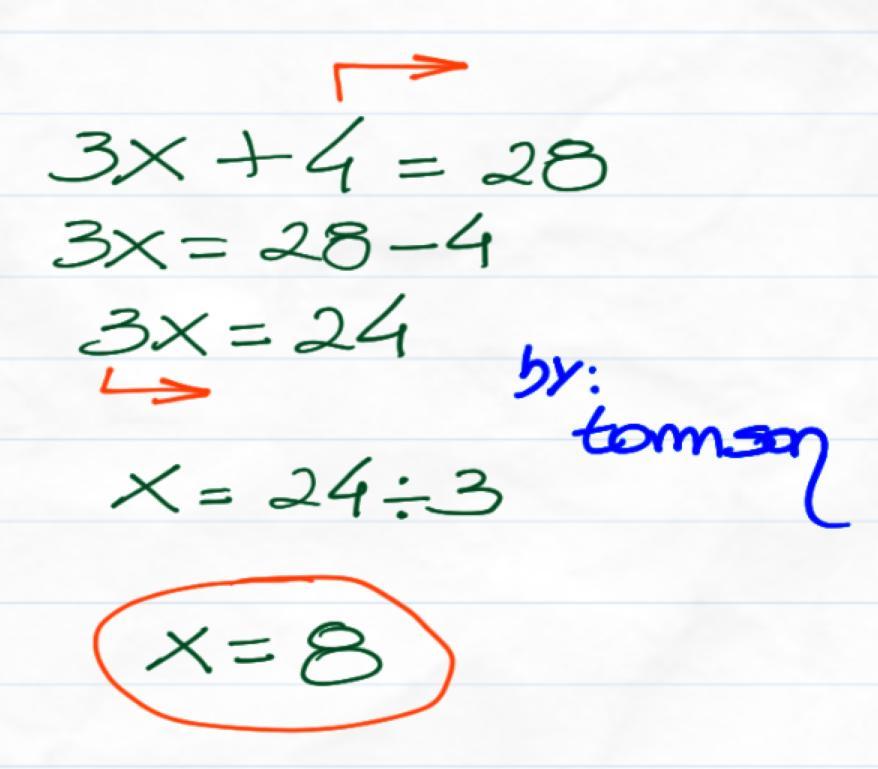 3x + 4 = 28
3x = 28 - 4
3x = 24
by:
tomson
x = 24 ÷ 3
x = 8